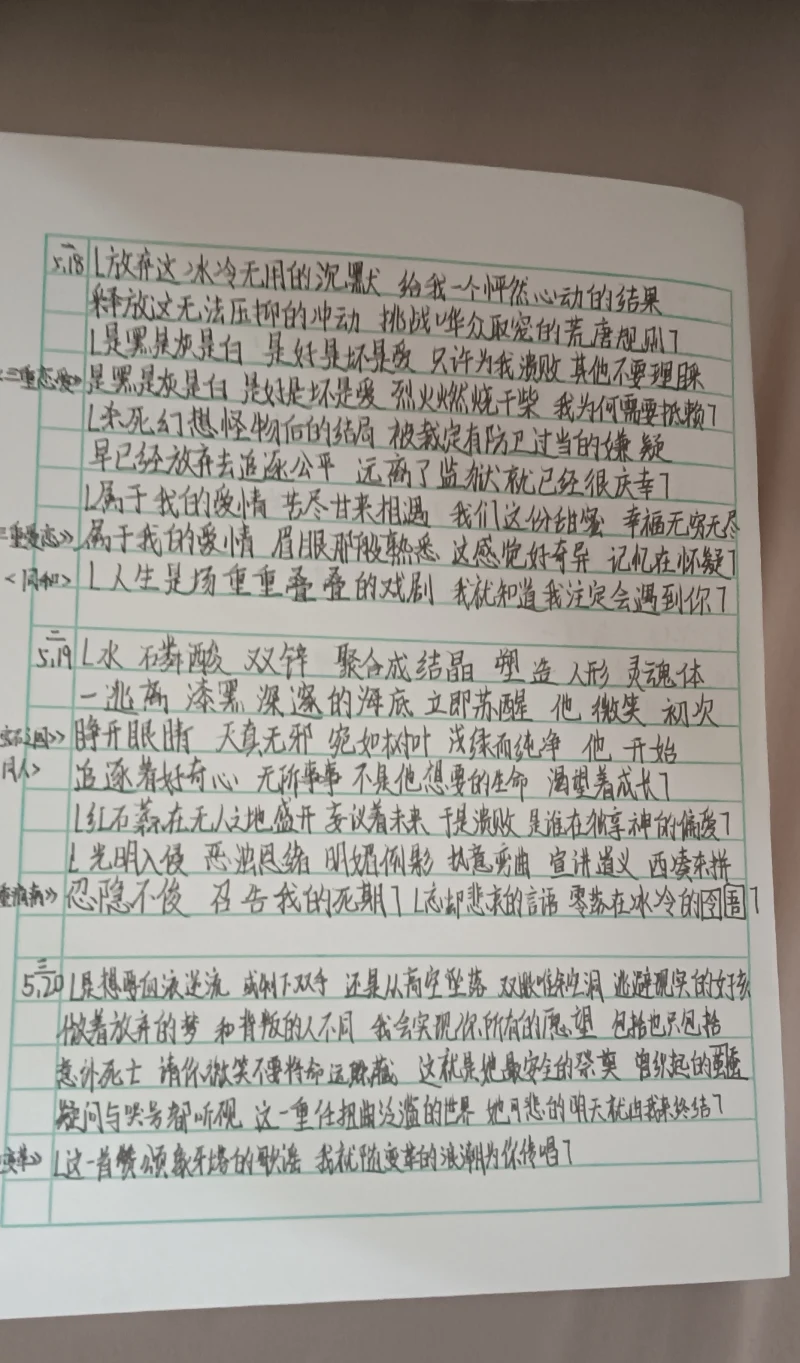 一
5.18 「放弃这冰冷无用的沉默 给我一个怦然心动的结果
释放这无法压抑的冲动 挑战哗众取宠的荒唐规则」
「是黑是灰是白 是好是坏是爱 只许为我溃败 其他不要理睬
三重恋爱》 是黑是灰是白 是好是坏是爱 烈火燃烧干柴 我为何需要抵赖」
「杀死幻想怪物后的结局 被裁定有防卫过当的嫌疑
早已经放弃去追逐公平 远离了监狱就已经很庆幸」
「属于我的爱情 苦尽甘来相遇 我们这份甜蜜 幸福无穷无尽
三重爱恋》 属于我的爱情 眉眼那般熟悉 这感觉好奇异 记忆在怀疑」
「人生是场重重叠叠的戏剧 我就知道我注定会遇到你」
二
5.19 「水 磷酸 双锌 聚合成结晶 塑造人形 灵魂体
一逃离 漆黑深邃的海底 立即苏醒 他 微笑 初次
睁开眼睛 天真无邪 宛如树叶 浅绿而纯净 他 开始
同人> 追逐着好奇心 无所事事 不是他想要的生命 渴望着成长」
「红石蒜在无人之地盛开 妄议着未来 于是溃败 是谁在独享神的偏爱」
「光明入侵 恶浊思绪 明媚倒影 执意弯曲 宣讲道义 西凑东拼
忍隐不俊 召告我的死期」「忘却悲哀的言语 零落在冰冷的囹圄」
三
5.20 「是想要血液逆流 或剁下双手 还是从高空坠落 双眼唯余空洞 逃避现实的好孩
做着放弃的梦 和背叛的人不同 我会实现你所有的愿望 包括也只包括
意外死亡 请你微笑不要将命运躲藏 这就是她最安全的祭奠 曾织起的茧
疑问与哭号都听观 这一重任扭曲泛滥的世界 她可悲的明天就由我来终结」
变革》 「这一首赞颂象牙塔的歌谣 我就随变革的浪潮为你传唱」